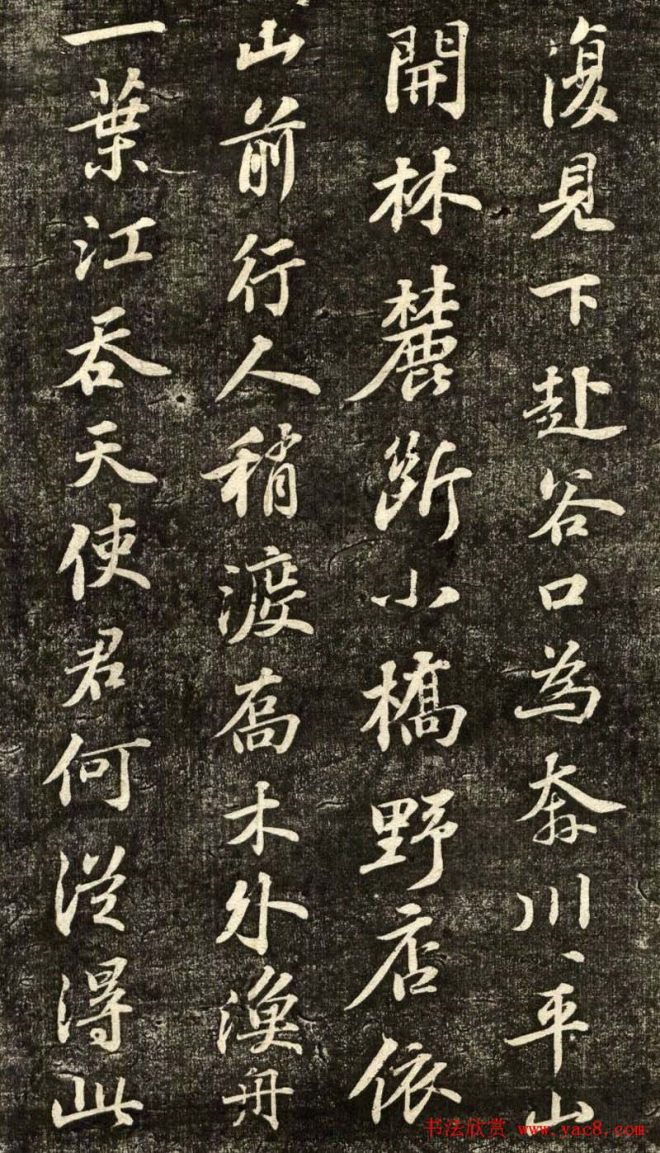 復見下赴谷口為奔川、平山
開林麓斷小橋野店依
山前行人稍渡喬木外漁舟
一葉江吞天使君何從得此
书法欣赏 www.yac8.com